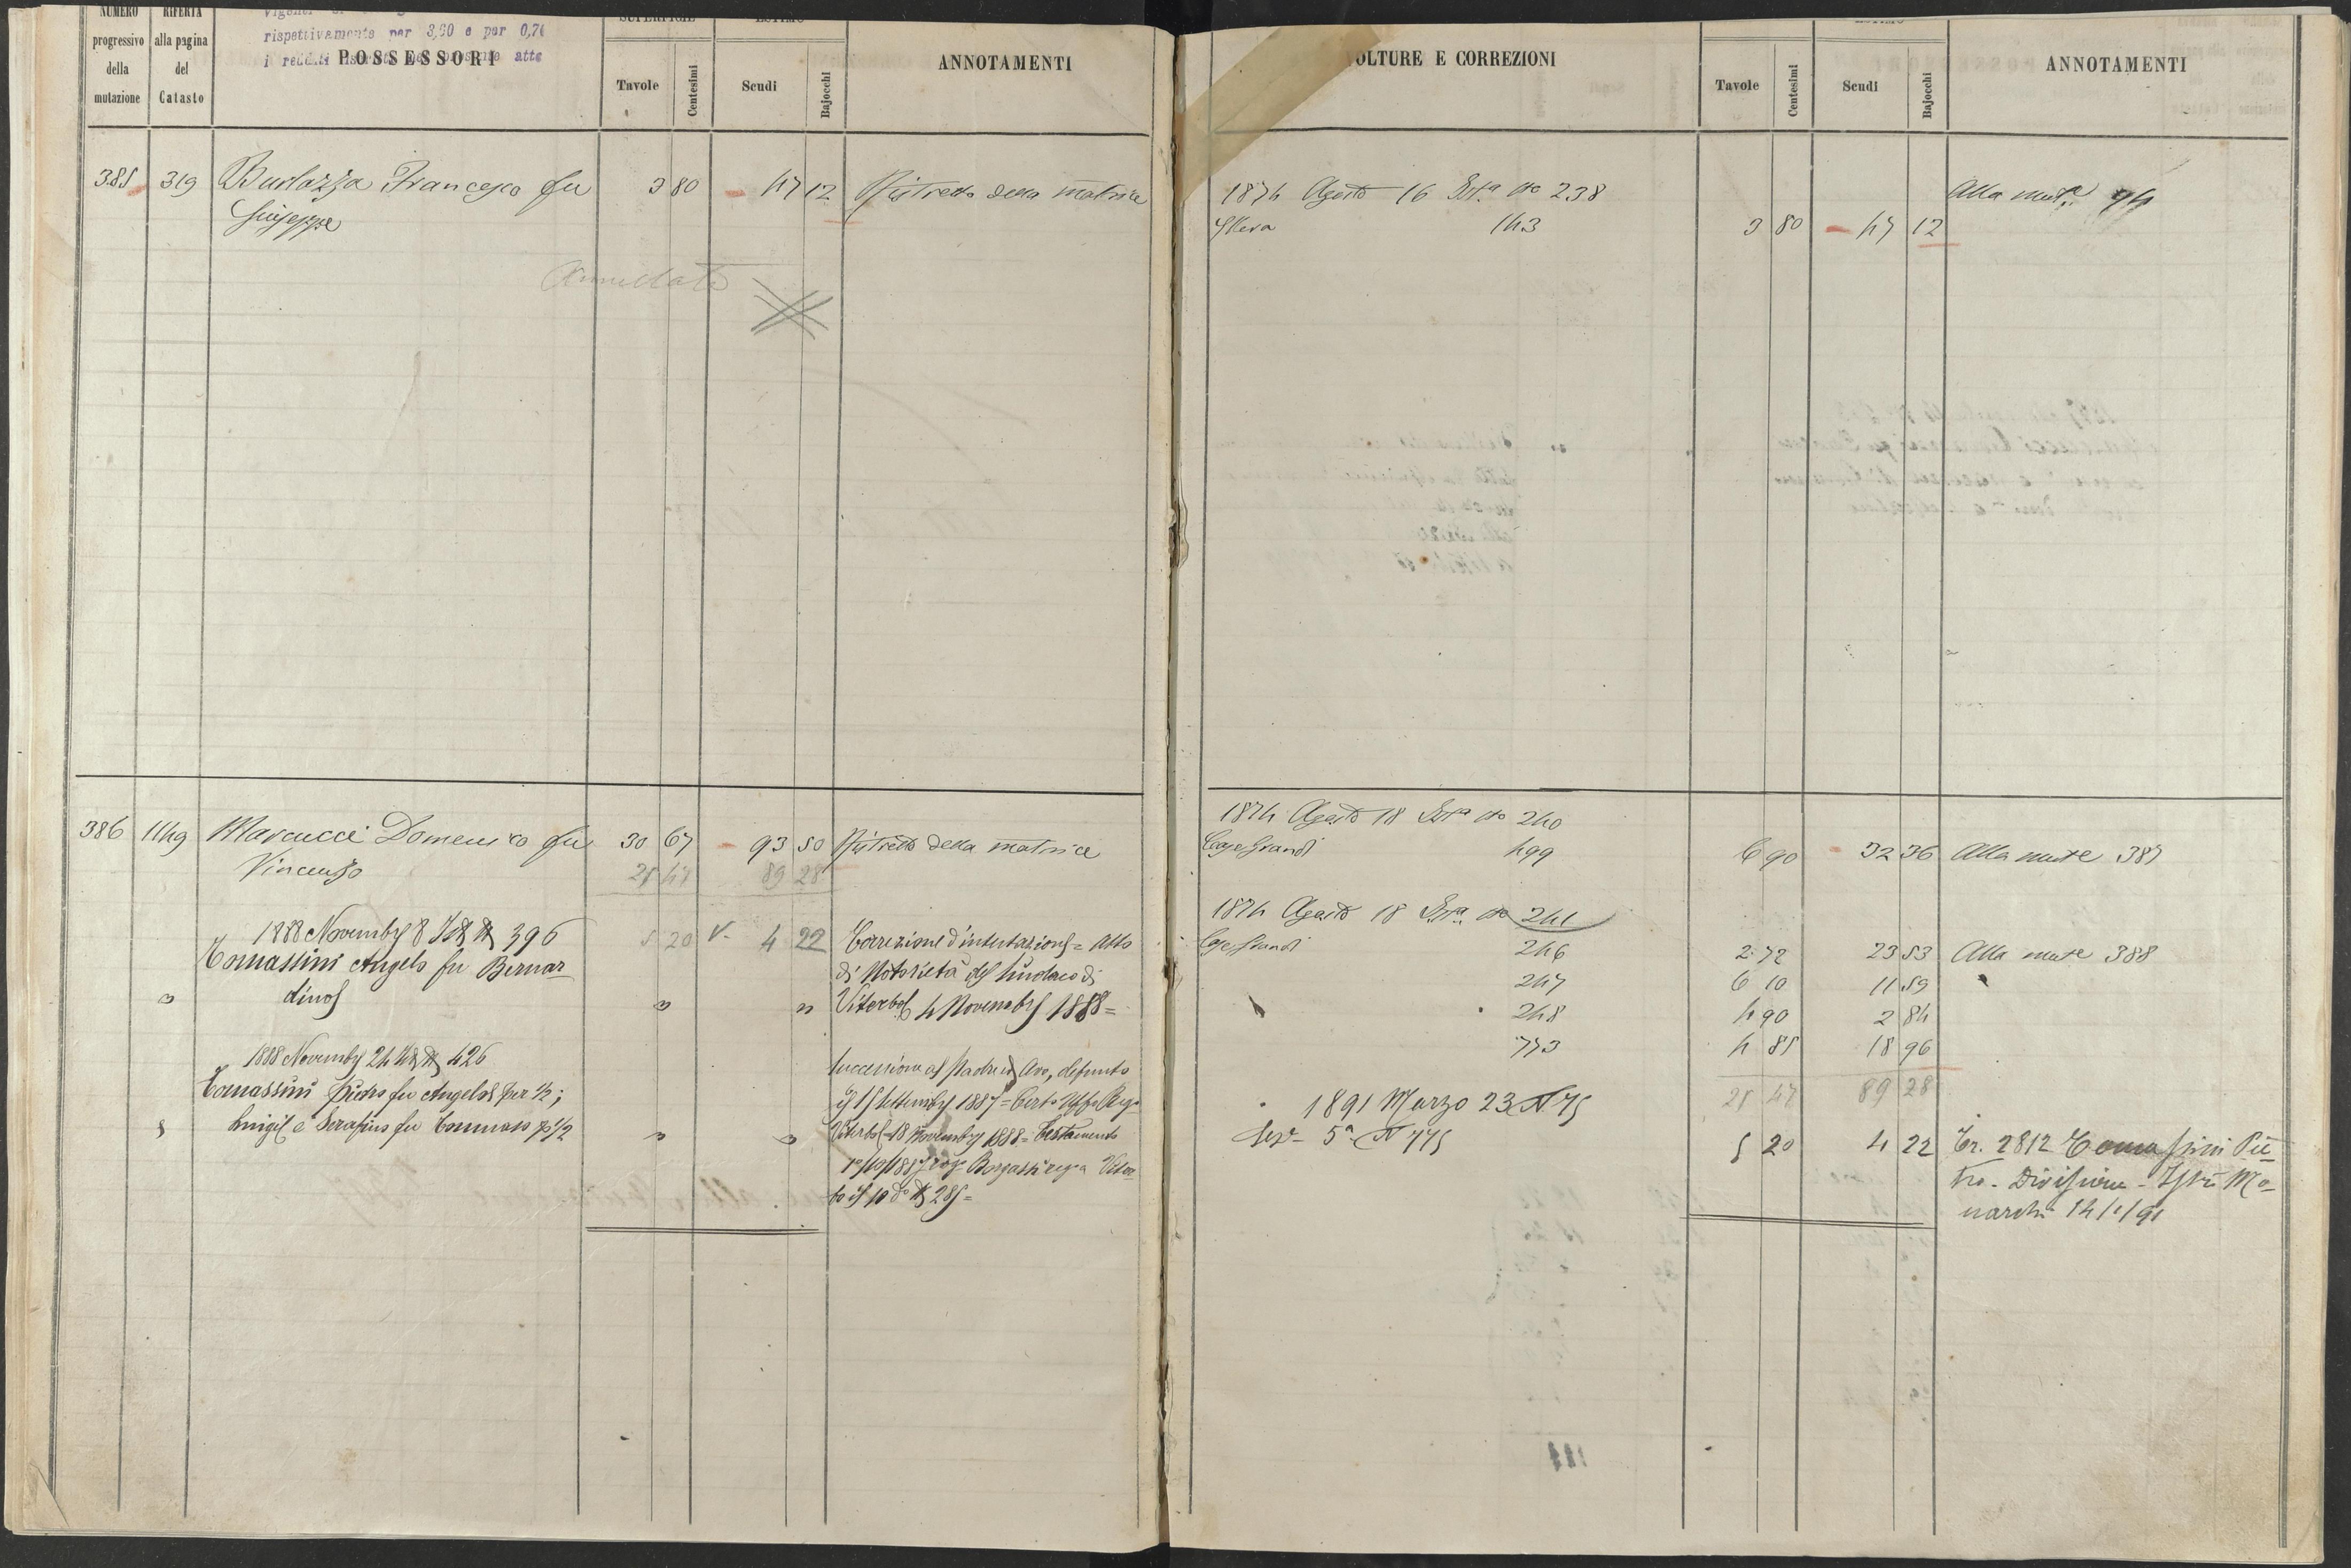 NUMERO progressivo della mutazione
RIFERTA alla pagina del Catasto
rispettivamente per 3,60 e per 0,70
i redditi
POSSESSORI
SUPERFICIE
Tavole Centesimi
ESTIMO
Scudi Bajocchi
ANNOTAMENTI
VOLTURE E CORREZIONI
Tavole Centesimi
ESTIMO
Scudi Bajocchi
ANNOTAMENTI
385 319 Burlazza Francesco fu 3 80 47 12 Ristretto della matrice
Giuseppe
Annullato
1874 Agosto 16 Ist.a No 238 Alla mut.a 74
143 3 80 47 12
386 1149 Marcucci Domenico fu 30 67 93 50 Ristretto della matrice
Vincenzo 25 47 89 28
1888 Novembre 8 396 5 20 4 22 Correzione d'intestazione = Atto
Tomassini Angelo fu Bernar di Notorietà del Sindaco di
dino " " " Viterbo 4 Novembre 1888 =
1888 Novembre 24 426 Successione al Padre ed Avo, defunto
Tomassini Pietro fu Angelo per 1/2; il 15 Settembre 1887 = Certo Uffo Rego
Luigi e Serafino fu Tommaso p 1/2 " " Viterbo 18 Novembre 1888 = Testamento
bo il 10 do 285 =
1874 Agosto 18 Ist.a No 240
Case Grandi 499 6 90 32 36 Alla mut.e 387
1874 Agosto 18 Ist.a No 241
Case Grandi 246 2 72 23 53 Alla mut.e 388
247 6 10 11 59
248 4 90 2 84
773 4 85 18 96
25 47 89 28
1891 Marzo 23 N 75
Sez. 5a N 775 5 20 4 22 Tr. 2812 Tomassini Pie
tro - Divisione - Istro Mo
narchi 14/1/91